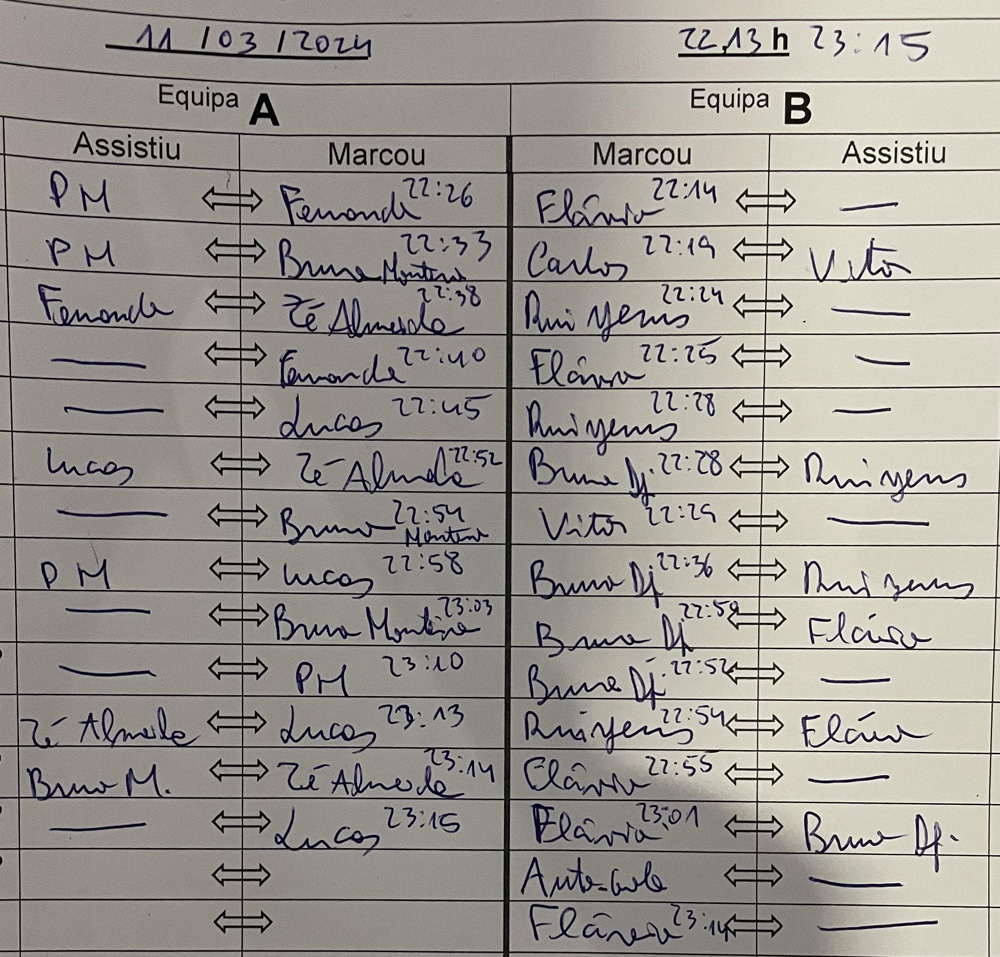 11 / 03 / 2024 22,13 h 23:15
Equipa A Equipa B
Assistiu Marcou Marcou Assistiu
PM Fernando 22:26 Flávio 22:14 —
PM Bruno Monteiro 22:33 Carlos 22:19 Vitor
Fernando Zé Almeida 22:38 Rui Yems 22:24 —
— Fernando 22:40 Flávio 22:25 —
— Lucas 22:45 Rui Yems 22:28 —
Lucas Zé Almeida 22:52 Bruno Dj. 22:28 Rui Yems
— Bruno Monteiro 22:54 Vitor 22:29 —
PM Lucas 22:58 Bruno Dj 22:36 Rui Yems
— Bruno Monteiro 23:03 Bruno Dj 22:50 Flávio
— PM 23:10 Bruno Dj. 22:52 —
Zé Almeida Lucas 23:13 Rui Yems 22:54 Flávio
Bruno M. Zé Almeida 23:14 Flávio 22:55 —
— Lucas 23:15 Flávio 23:01 Bruno Dj.
Auto-golo —
Flávio 23:14 —